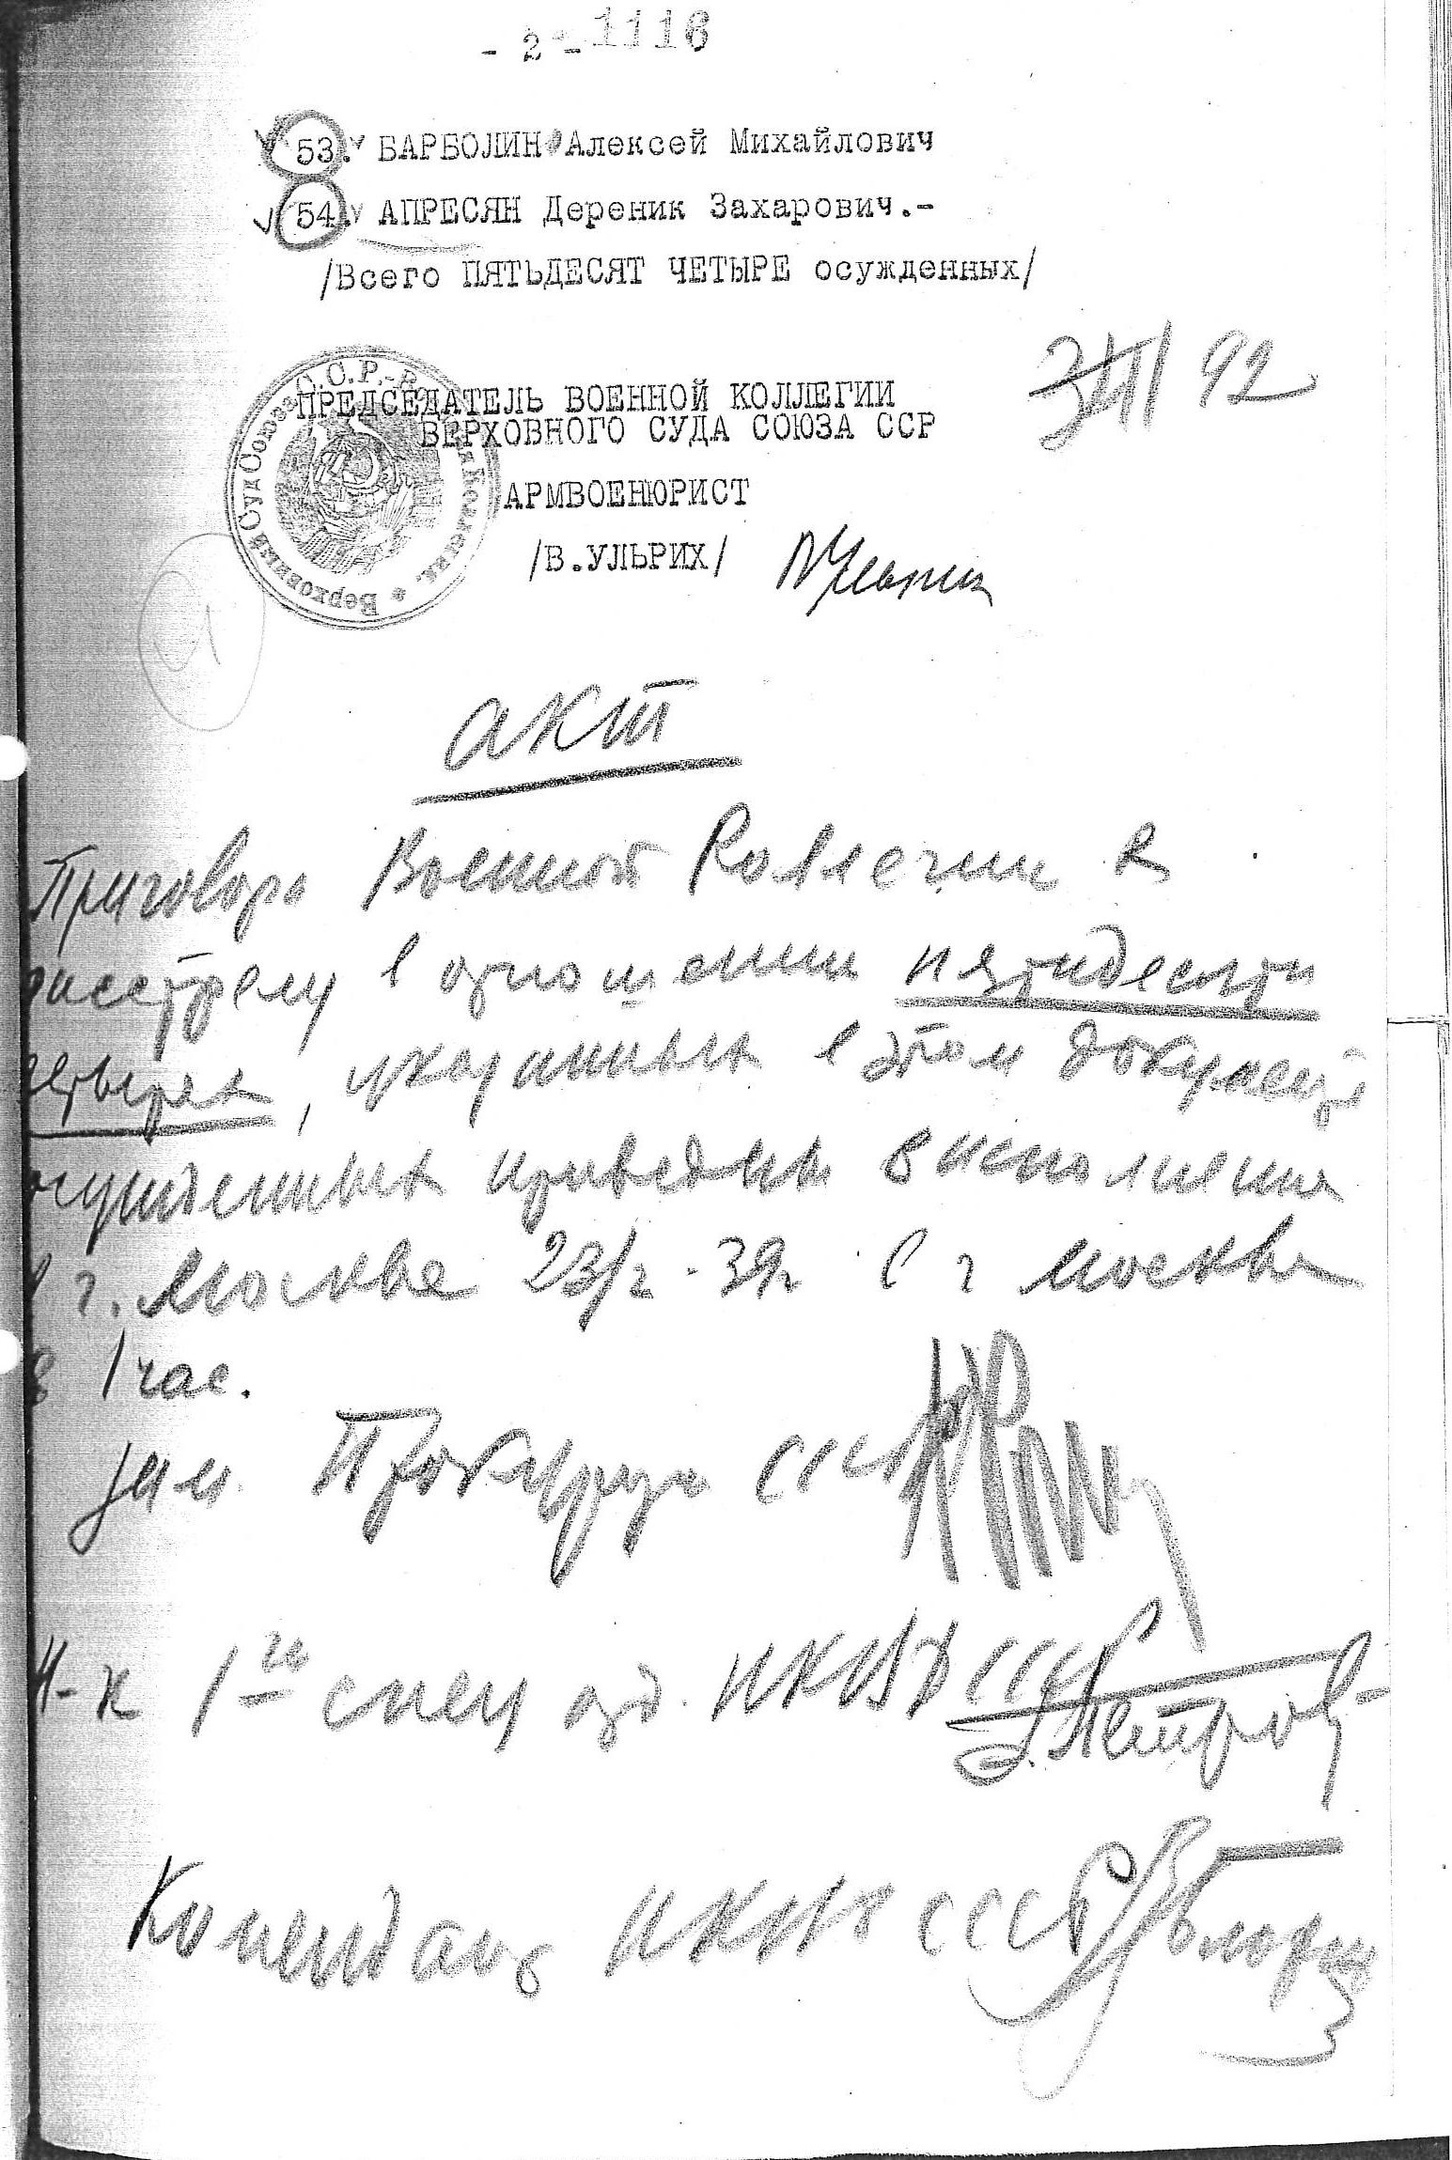 - 2 - 1116
53. БАРБОЛИН Алексей Михайлович
54. АПРЕСЯН Дереник Захарович.-
/Всего ПЯТЬДЕСЯТ ЧЕТЫРЕ осужденных/
92
ПРЕДСЕДАТЕЛЬ ВОЕННОЙ КОЛЛЕГИИ
ВЕРХОВНОГО СУДА СОЮЗА ССР
АРМВОЕНЮРИСТ
/В.УЛЬРИХ/ ВУльрих
Верховный Суд Союза С.С.Р.
акт
Приговора Военной Коллегии к
расстрелу в отношении пятидесяти
четырех, указанных в этом документе
осужденных приведены в исполнение
в г. Москве 23/2-39г. в г Москве
в 1 час.
зам. Прокурора СССР
Н-к 1го спец отд. НКВД СССР
Петров
Комендант НКВД СССР Блохин